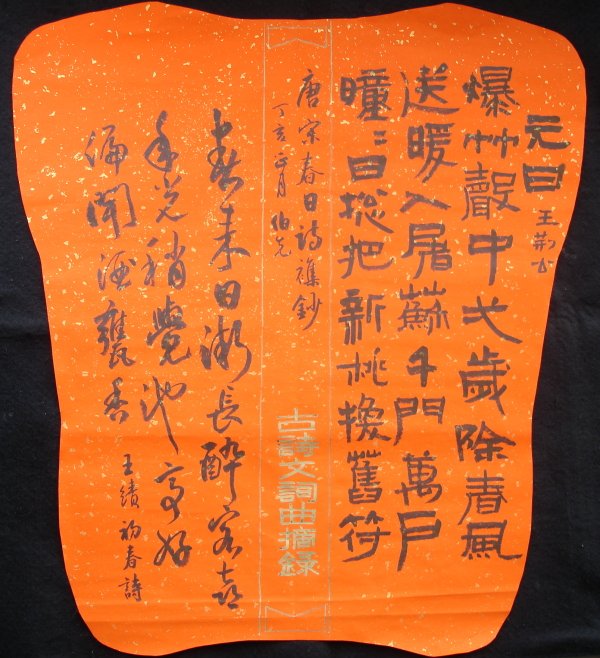 元日 王荊公
爆竹聲中弌歲除春風
送暖入屠蘇千門萬戶
曈〻日總把新桃換舊符
唐宋春日詩襍鈔
丁亥正月 伯
古詩文詞曲摘錄
春來日漸長醉客喜
年光稍覺池亭好
偏聞酒甕香 王績初春詩